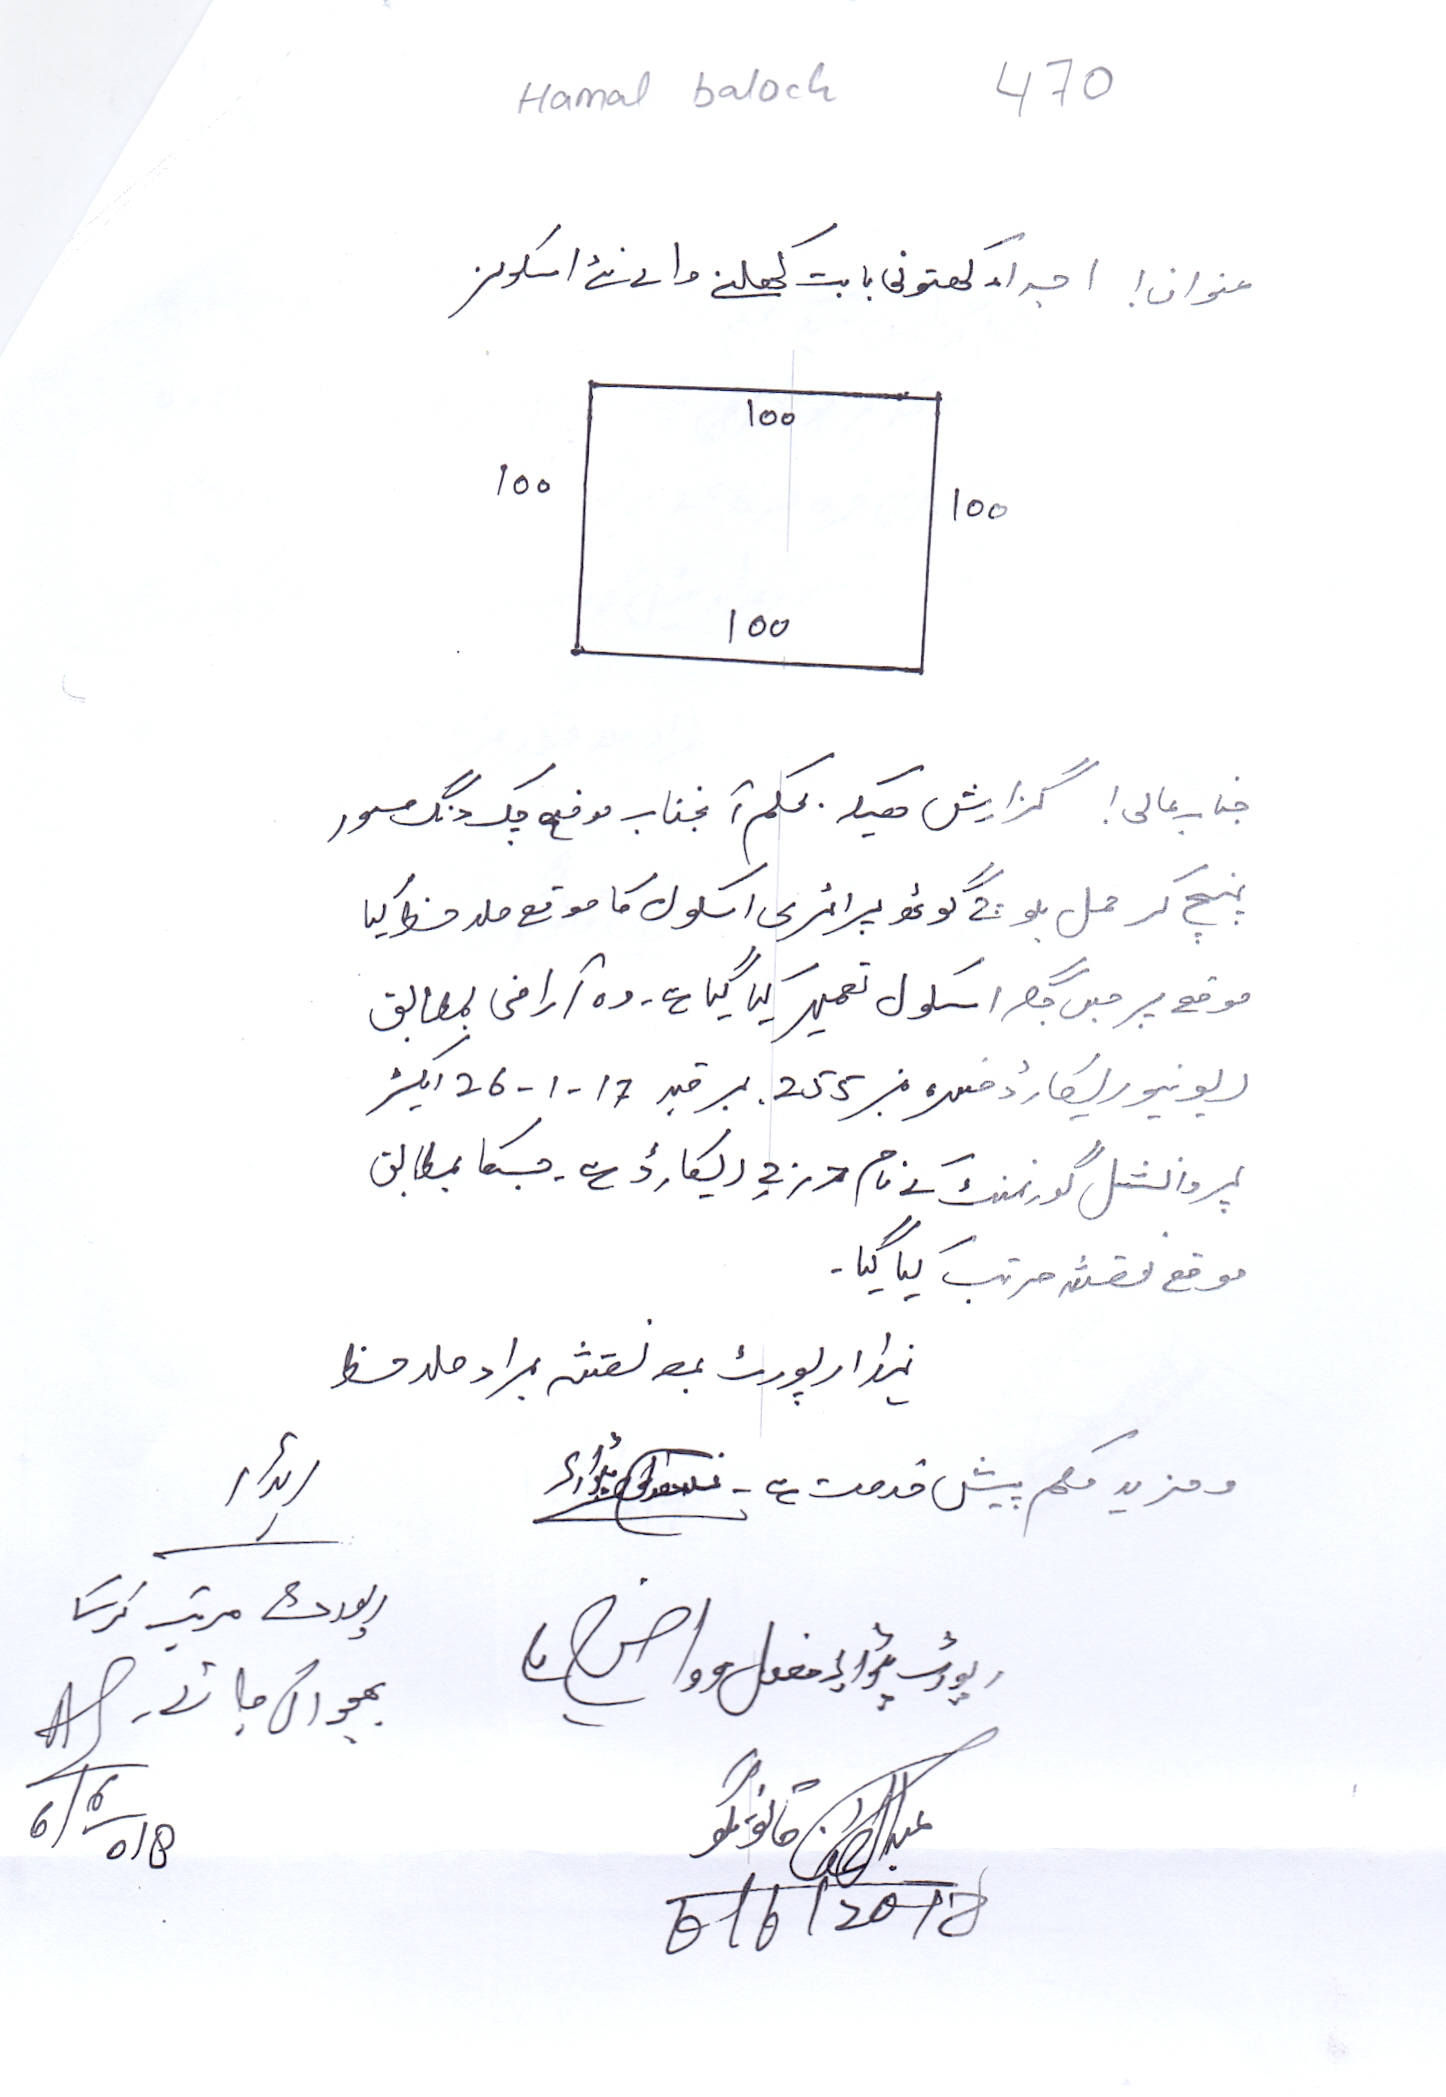 Hamal baloch 470
عنوان! اجراء کھتونی بابت کھلنے والے نئے اسکولز
100
100
100
100
جناب عالی! گزارش ھیکہ بحکم آنجناب موضع چک
پہنچ کر حمل بلوچ گوٹھ پرائمری اسکول کا موقع ملاحظہ کیا
موقعے پر جس جگہ اسکول تعمیر کیا گیا ہے۔ وہ آراضی بمطابق
ریونیو ریکارڈ خسرہ نمبر 255 برقبہ 17-1-26 ایکڑ
پروانشل گورنمنٹ کے نام درج ریکارڈ ہے۔ جسکا بمطابق
موقع نقشہ مرتب کیا گیا۔
لہذا رپورٹ بمعہ نقشہ بمراد ملاحظہ
و مزید حکم پیش خدمت ہے۔
رپورٹ پٹواری مفصل و واضح
قانونگو
6/6/2018
رپورٹ مرتب کرکے
بھجوائی جائے۔
6/6/018